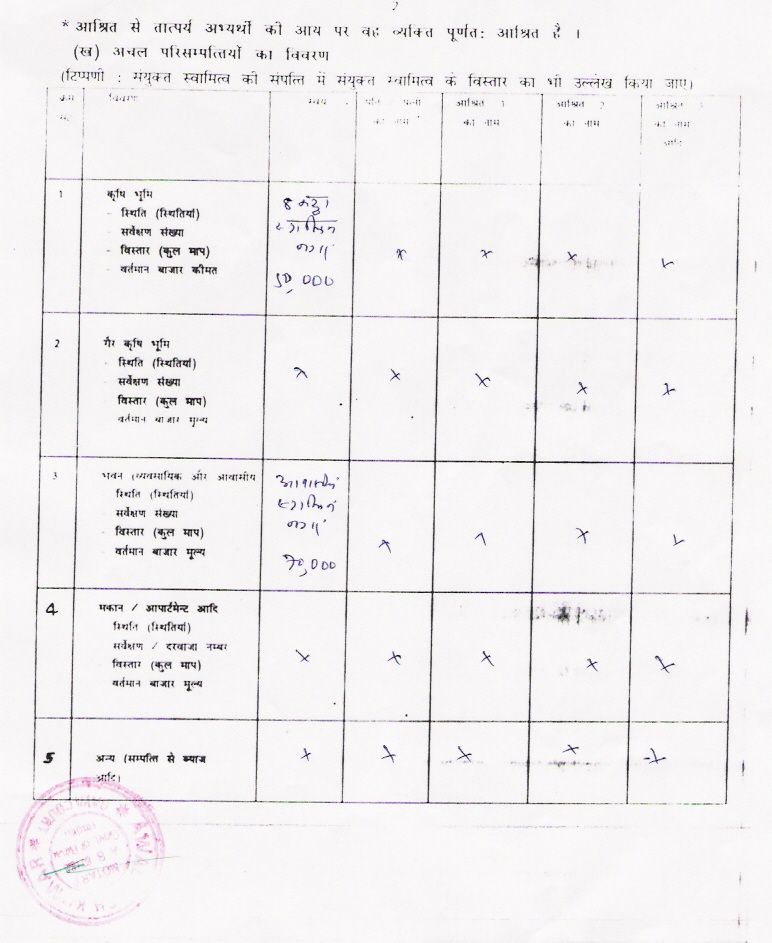 2
* आश्रित से तात्पर्य अभ्यर्थी की आय पर वह व्यक्ति पूर्णत: आश्रित है ।
(ख) अचल परिसम्पत्तियों का विवरण
(टिप्पणी : संयुक्त स्वामित्व की संपत्ति में संयुक्त स्वामित्व के विस्तार का भी उल्लेख किया जाए)
क्रम विवरण स्वयं पति पत्नी आश्रित 1 आश्रित 2 आश्रित 3
सं. का नाम का नाम का नाम का नाम
आदि
1 कृषि भूमि 8
- स्थिति (स्थितियां)
- सर्वेक्षण संख्या
- विस्तार (कुल माप) x x x x
- वर्तमान बाजार कीमत 50,000
2 गैर कृषि भूमि
- स्थिति (स्थितियां) x x x x x
- सर्वेक्षण संख्या
- विस्तार (कुल माप)
वर्तमान बाजार मूल्य
3 भवन (व्यवसायिक और आवासीय
स्थिति (स्थितियां)
सर्वेक्षण संख्या
- विस्तार (कुल माप) x x x x
- वर्तमान बाजार मूल्य 70,000
4 मकान / आपार्टमेन्ट आदि
स्थिति (स्थितियां)
सर्वेक्षण / दरवाजा नम्बर x x x x x
विस्तार (कुल माप)
वर्तमान बाजार मूल्य
5 अन्य (सम्पत्ति से ब्याज x x x x x
आदि)
NOTARY